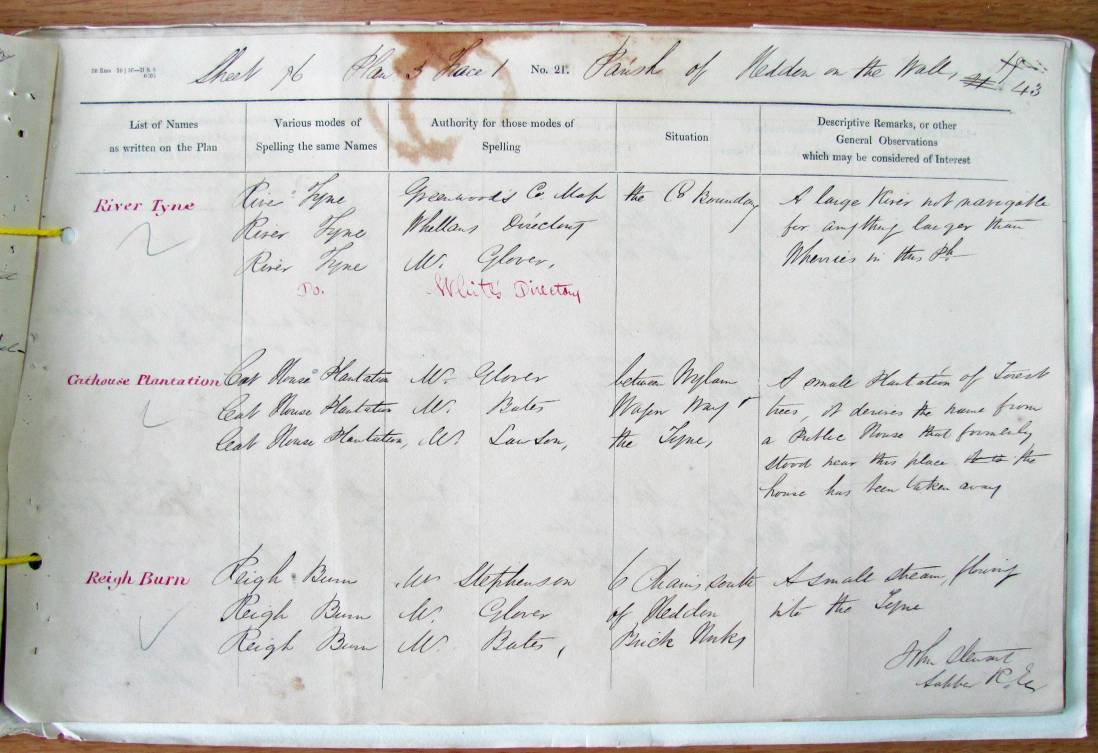 Sheet 96 Plan 5 Trace 1 No. 21. Parish of Heddon on the Wall,
43
List of Names
as written on the Plan
Various modes of
Spelling the same Names
Authority for those modes of
Spelling
Situation
Descriptive Remarks, or other
General Observations
which may be considered of Interest
River Tyne
River Tyne
River Tyne
River Tyne
Do.
Greenwood's Co. Map
Whellans Directory
Mr. Glover,
White's Directory
the Co Boundary
A large River not navigable
for anything larger than
Wherries in this Ph
Cathouse Plantation
Cat House Plantation
Cat House Plantation
Cat House Plantation,
Mr. Glover
Mr. Bates
Mr. Lawson,
between Wylam
Wagon Way &
the Tyne,
A small Plantation of Forest
trees, it derives the name from
a Public House that formerly
stood near this place the
house has been taken away
Reigh Burn
Reigh Burn
Reigh Burn
Reigh Burn
Mr. Stephenson
Mr. Glover
Mr. Bates,
6 Chains south
of Heddon
Brick Works
A small stream, flowing
into the Tyne
John Stewart
Sapper R.E.